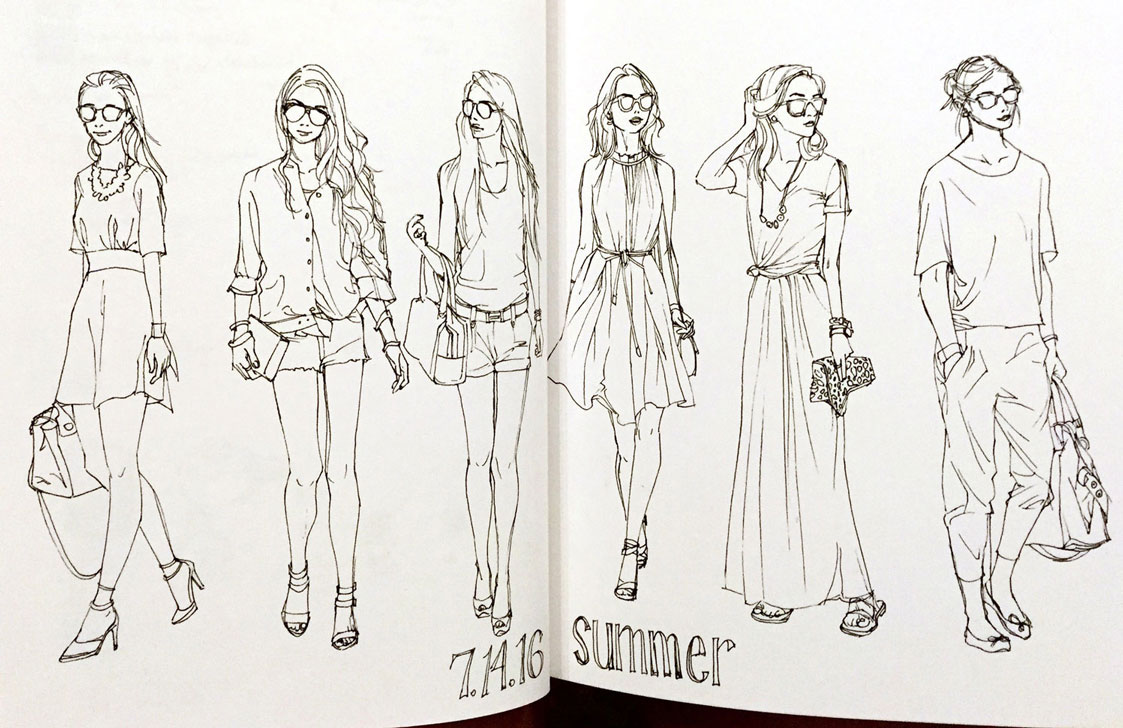 7.14.16 summer